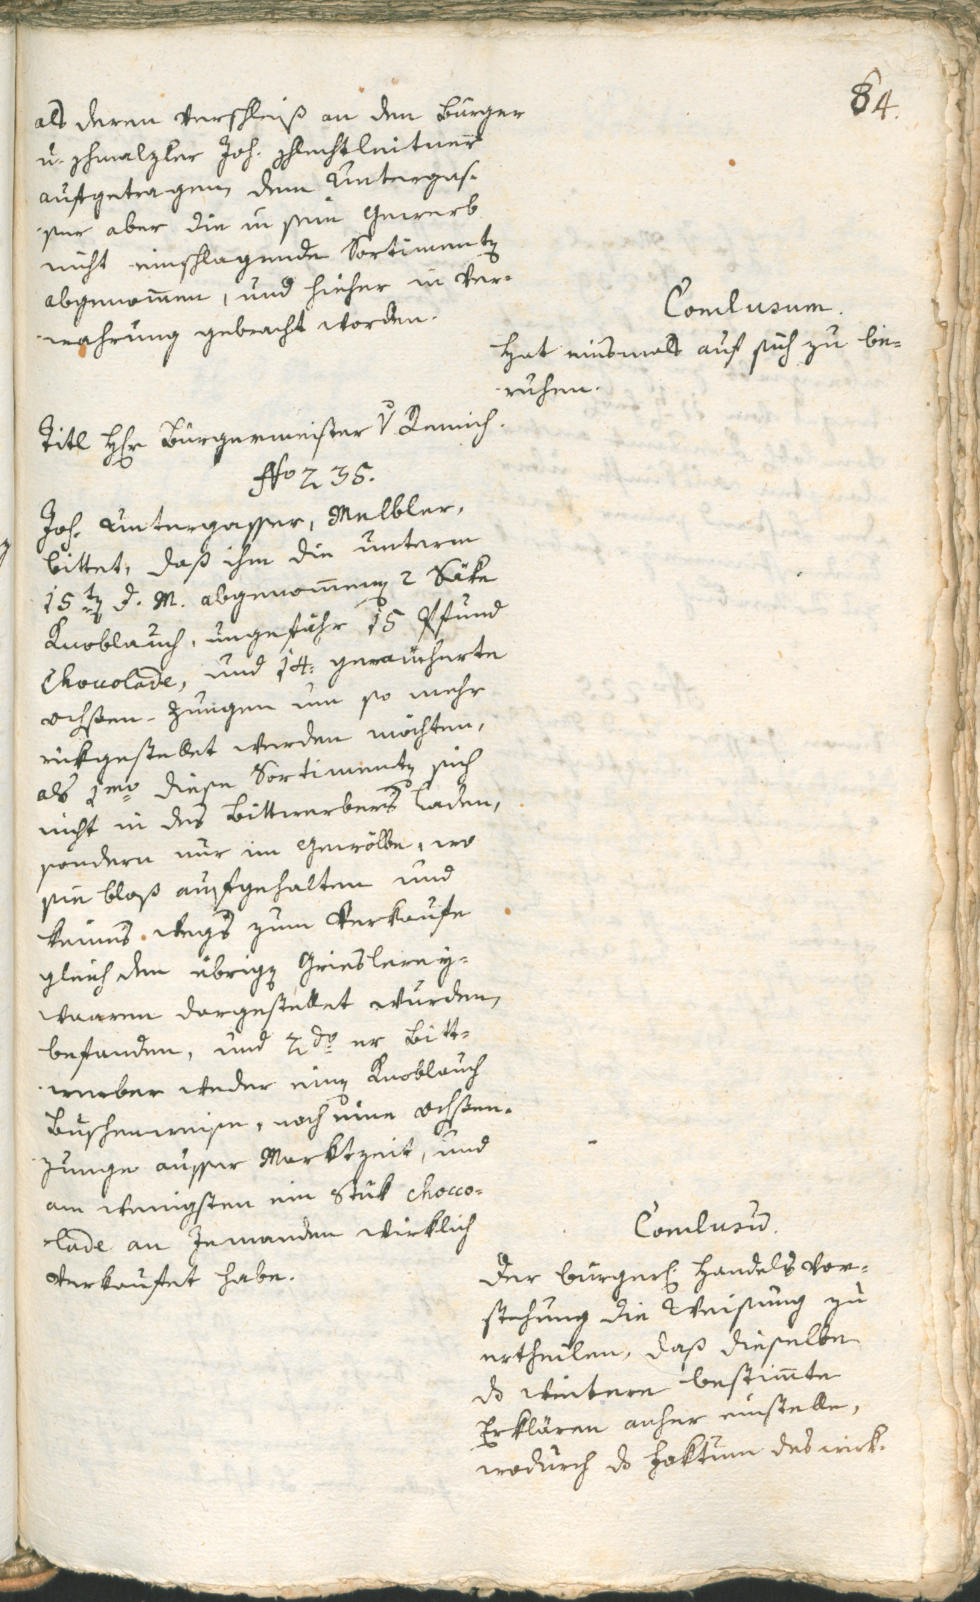 84.
als deren Verschleiß an den Bürger
u. Schmalzler Joh. Schlechtleitner
aufgetragen, dem Untergas-
ser aber die in sein Gewerb
nicht einschlagende Sortimentg
abgenom̄en, und hieher in Ver-
wahrung gebracht worden.
Conclusum.
Hat einsmals auf sich zu be-
ruhen.
Titl Hr Bürgermeister v Remich.
No 235.
Joh. Untergasser, Melbler,
bittet, daß ihm die unterm
15tg d. M. abgenom̄eng 2 Säke
Knoblauch, ungefähr 15 Pfund
Chocolade, und 14. geräucherte
Ochsen-Zungen um so mehr
rükgestellet werden möchten,
als 1mo diese Sortimentg sich
nicht in des Bittwerbers Laden,
sondern nur im Gewölbe, wo
sie bloß aufgehalten und
keines Wegs zum Verkaufe
gleich den übrigg Grieslerey-
waaren dargestellet wurden,
befanden, und 2do er Bitt-
werber weder eing Knoblauch
Buschenweise, noch eine Ochsen-
Zunge ausser Marktzeit, und
am wenigsten ein Stük Chocco-
lade an Jemanden wirklich
verkaufet habe.
Conclusū.
Der bürgerl. Handels Vor-
stehung die Weisung zu
ertheilen, daß dieselbe
do weitere bestim̄te
Erklären anher einstelle,
wodurch do Faktum des rük-